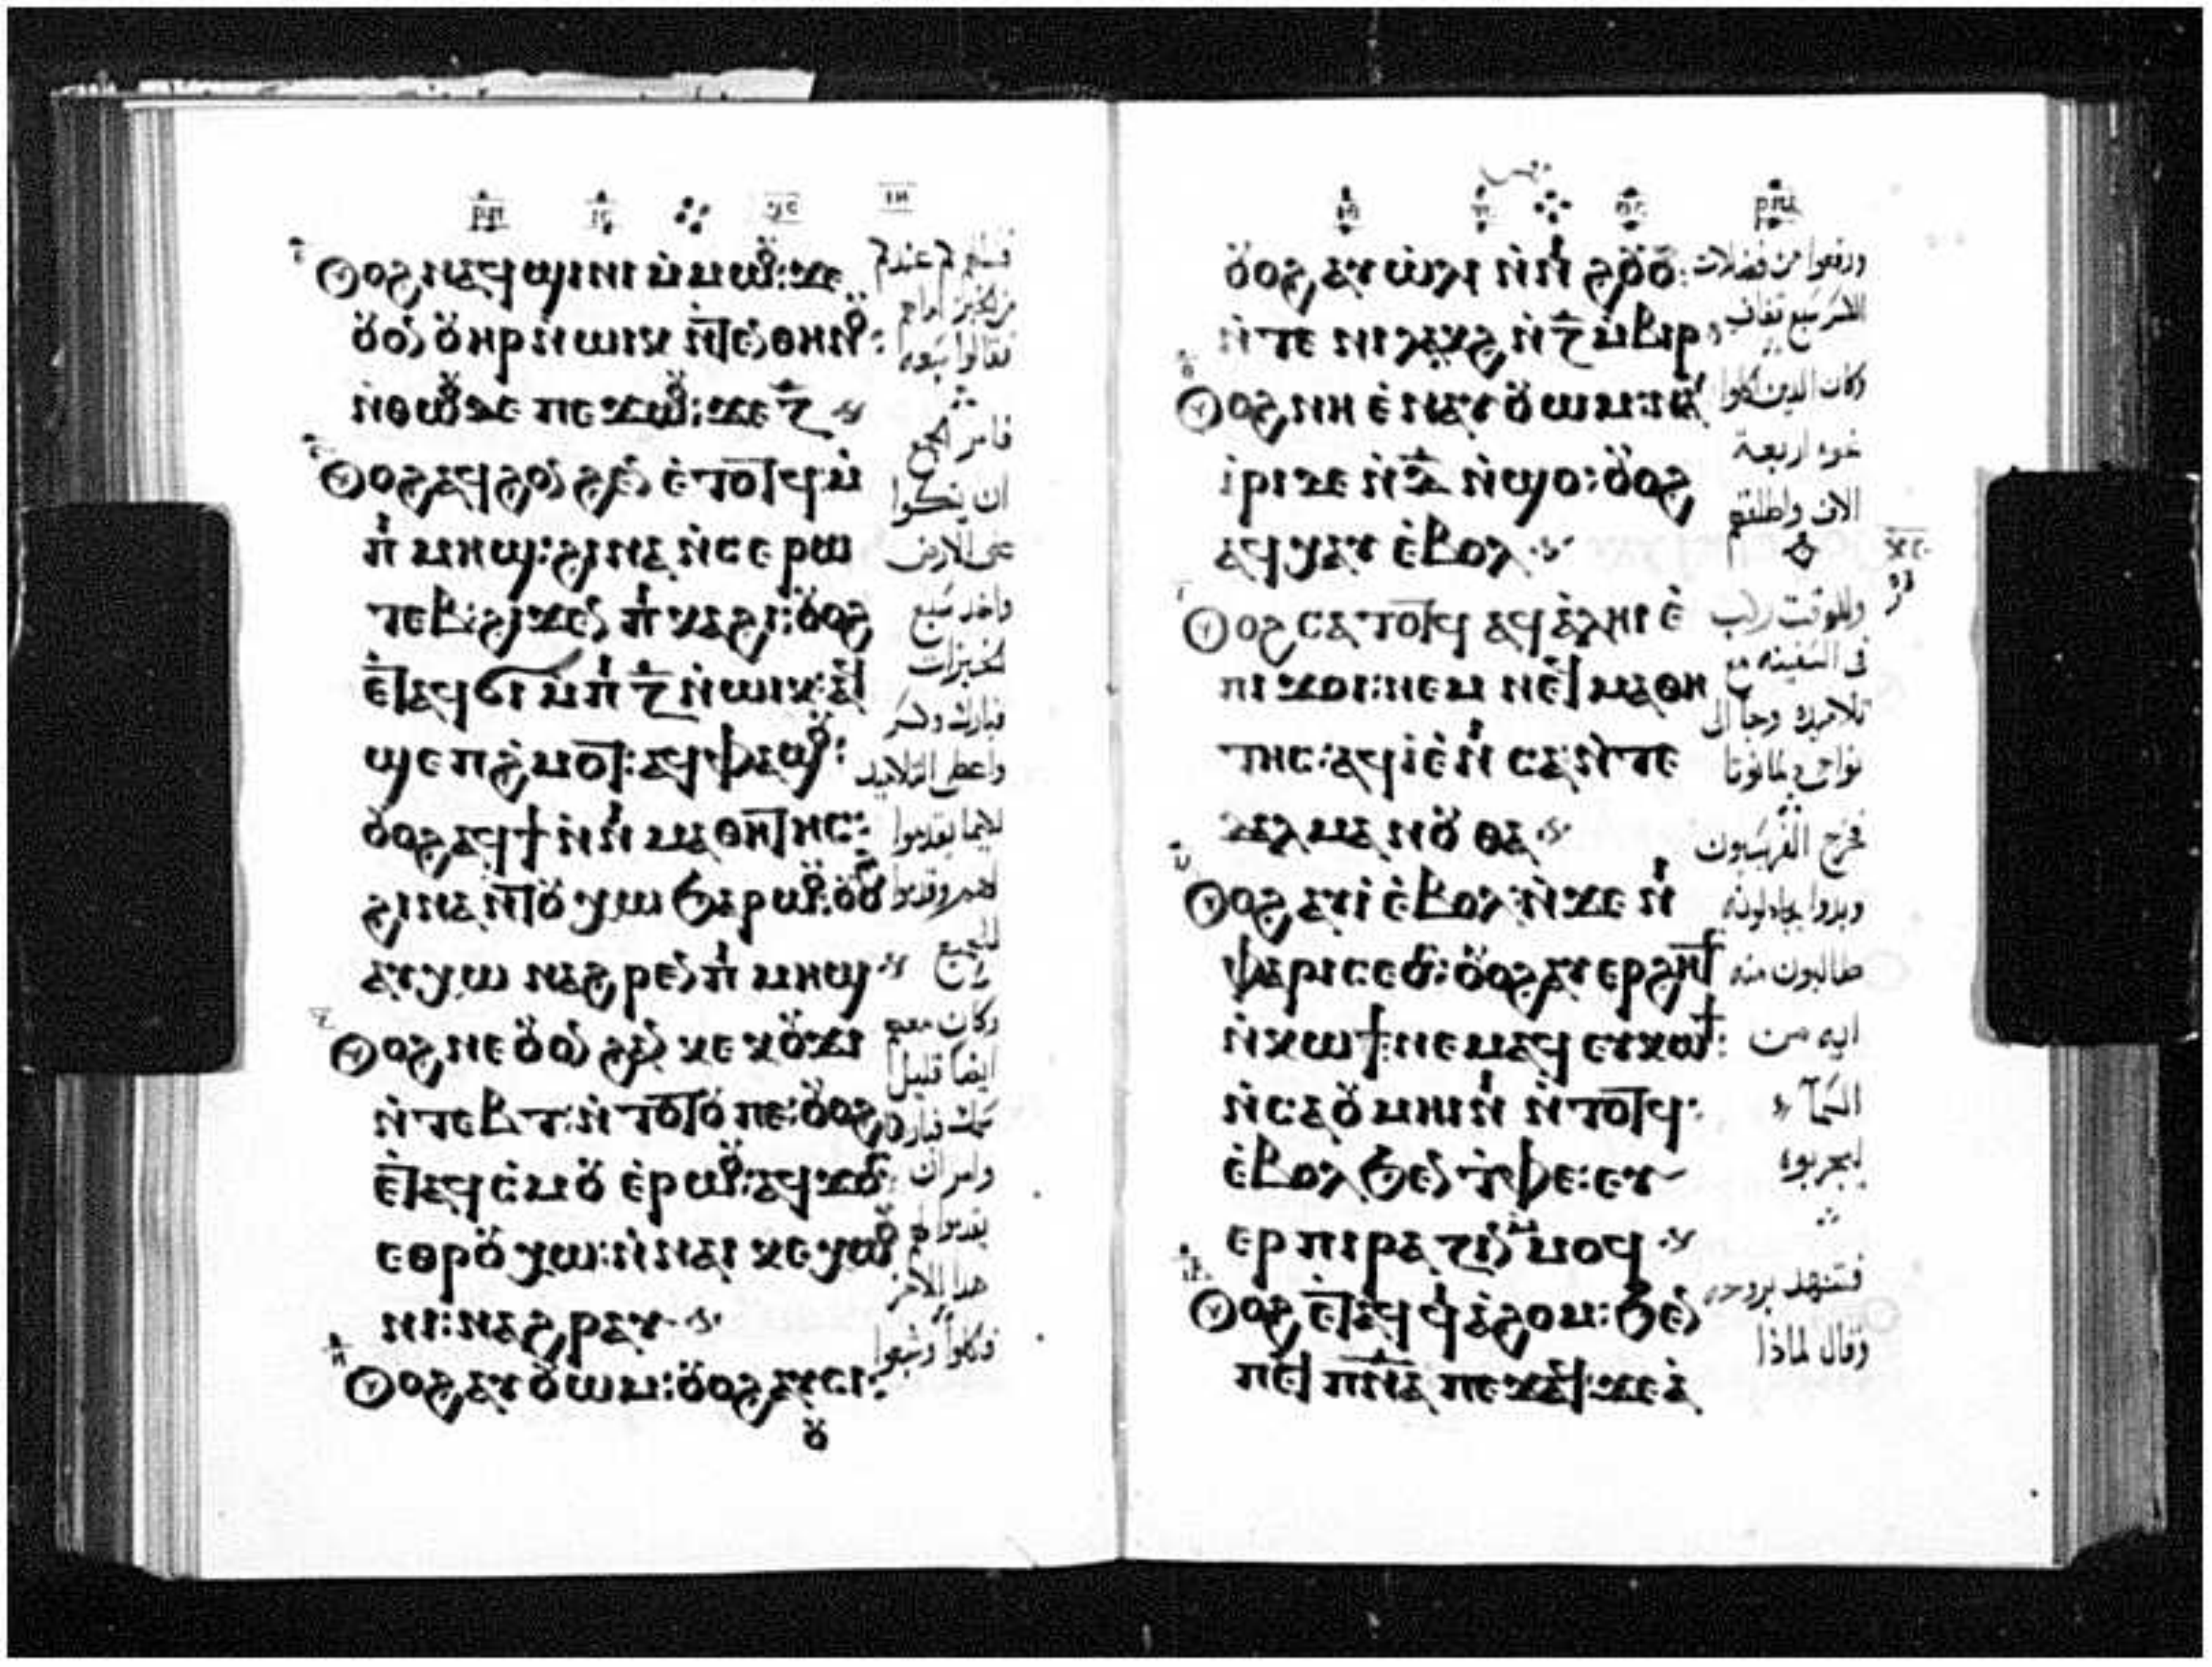 Ⲟⲩⲟϩ ⲛⲁϥϣⲓⲛⲓ ⲙ̀ⲙⲱⲟⲩ: ϫⲉ
ⲟⲩⲟⲛ ⲟⲩⲏⲣ ⲛ̀ⲱⲓⲕ ⲛ̀ⲧⲉⲛ ⲑⲏⲛⲟⲩ:
ⲛ̀ⲑⲱⲟⲩ ⲇⲉ ⲡⲉϫⲱⲟⲩ: ϫⲉ ⲍ̅
Ⲟⲩⲟϩ ⲁϥϩⲟⲛϩⲉⲛ ⲉ̀ⲧⲟⲧϥ ⲙ̀
ⲡⲓ ⲙⲏϣ: ϩⲓⲛⲁ ⲛ̀ⲥⲉ ⲣⲱ
ⲧⲉⲃ: ϩⲓϫⲉⲛ ⲡⲓ ⲕⲁϩⲓ: ⲟⲩⲟϩ
ⲉ̀ⲧⲁϥϭⲓ ⲙ̀ⲡⲓ ⲍ̅ ⲛ̀ⲱⲓⲕ: ⲁϥ
ϣⲉⲡϩ̀ⲙⲟⲧ: ⲁϥⲫⲁϣⲟⲩ:
ⲟⲩⲟϩ ⲁϥϯ ⲛ̀ⲛⲓ ⲙⲁⲑⲏⲧⲏⲥ:
ϩⲓⲛⲁ ⲛ̀ⲧⲟⲩ ⲭⲱ ϧⲁⲣⲱⲟⲩ: ⲟⲩⲟϩ
ⲁⲩⲭⲱ ⲛⲁϩⲣⲉⲛ ⲡⲓ ⲙⲏϣ
Ⲟⲩⲟϩ ⲛⲉ ⲟⲩⲟⲛ ϩⲁⲛ ⲕⲉ ⲕⲟⲩϫⲓ
ⲛ̀ⲧⲉⲃⲧ: ⲛ̀ⲧⲟⲧⲟⲩ ⲡⲉ: ⲟⲩⲟϩ
ⲉ̀ⲧⲁϥⲥ̀ⲙⲟⲩ ⲉ̀ⲣⲱⲟⲩ: ⲁϥϫⲟⲥ
ⲉⲑⲣⲟⲩ ⲭⲱ: ⲛ̀ⲛⲁⲓ ⲕⲉ ⲭⲱⲟⲩ
ⲛⲓ: ⲛⲁϩⲣⲁⲩ
Ⲟⲩⲟϩ ⲁⲩⲟⲩⲱⲙ: ⲟⲩⲟϩ ⲁⲩⲥⲓ:
ⲟⲩ
عندكم
من الخبز اما هم
فقالوا سبعه
فامر الجمع
ان يتكوا
على الارض
واخد سبع
الخبزات
فبارك وكسر
واعطى التلاميد
لكيما يقدموا
لهم وقدموا
للجميع
وكان معهم
ايضا قليل
سمك فبارك
وامر ان
يقدموا لهم
هدا الاخر
فاكلوا وشبعوا
ⲟⲩⲟϩ ⲁⲩⲱ̀ⲗⲓ ⲛ̀ⲛⲓ ϩⲟⲩⲟ̀:
ⲛ̀ⲧⲉ ⲛⲓ ⲗⲁⲕϩ ⲛ̀ⲍ̅ ⲙ̀ⲃⲓⲣ
Ⲟⲩⲟϩ ⲛⲏ ⲉ̀ⲛⲁⲩ ⲟⲩⲱⲙ: ⲛⲁⲩ
ⲓ̀ⲣⲓ ⲇⲉ ⲛ̀ⲇ̅ ⲛ̀ϣⲟ: ⲟⲩⲟϩ
ⲁϥⲭⲁⲩ ⲉ̀ⲃⲟⲗ
Ⲟⲩⲟϩ ⲥⲁⲧⲟⲧϥ ⲁϥⲁ̀ⲗⲏⲓ ⲉ̀
ⲡⲓ ϫⲟⲓ: ⲛⲉⲙ ⲛⲉϥ ⲙⲁⲑⲏ
ⲧⲏⲥ: ⲁϥⲓ̀ ⲉ̀ⲛⲓ ⲥⲁ ⲛ̀ⲧⲉ
ⲇⲁⲗⲙⲁⲛⲟⲩⲑⲁ
Ⲟⲩⲟϩ ⲁⲩⲓ̀ ⲉ̀ⲃⲟⲗ: ⲛ̀ϫⲉ ⲛⲓ
ⲫⲁⲣⲓⲥⲉⲟⲥ: ⲟⲩⲟϩ ⲁⲩⲉⲣϩⲏⲧⲥ
ⲛ̀ⲕⲱϯ: ⲛⲉⲙⲁϥ ⲉⲩⲕⲱϯ:
ⲛ̀ⲥⲁ ⲟⲩ ⲙⲏⲓⲛⲓ ⲛ̀ⲧⲟⲧϥ:
ⲉ̀ⲃⲟⲗ ϧⲉⲛ ⲧ̀ⲫⲉ: ⲉⲩ
ⲉⲣ ⲡⲓⲣⲁⲍⲓⲛ ⲙ̀ⲙⲟϥ
Ⲟⲩⲟϩ ⲉ̀ⲧⲁϥ ϥⲓⲁ̀ϩⲟⲙ: ϧⲉⲛ
ⲡⲉϥ ⲡ̅ⲛ̅ⲁ̅ ⲡⲉϫⲁϥ: ϫⲉ ⲁ̀
ورفعوا من فضلات
الكسر سبع قفاف
وكان الدين اكلوا
نحو اربعة
الاف واطلقهم
وللوقت ركب
فى السفينه مع
تلاميده وجا الى
نواحى دلمانوتا
فخرج الفريسيون
وبدوا يجادلونه
طالبون منه
ايه من
السمآء
ليجربوه
فتنهد بروحه
وقال لماذا